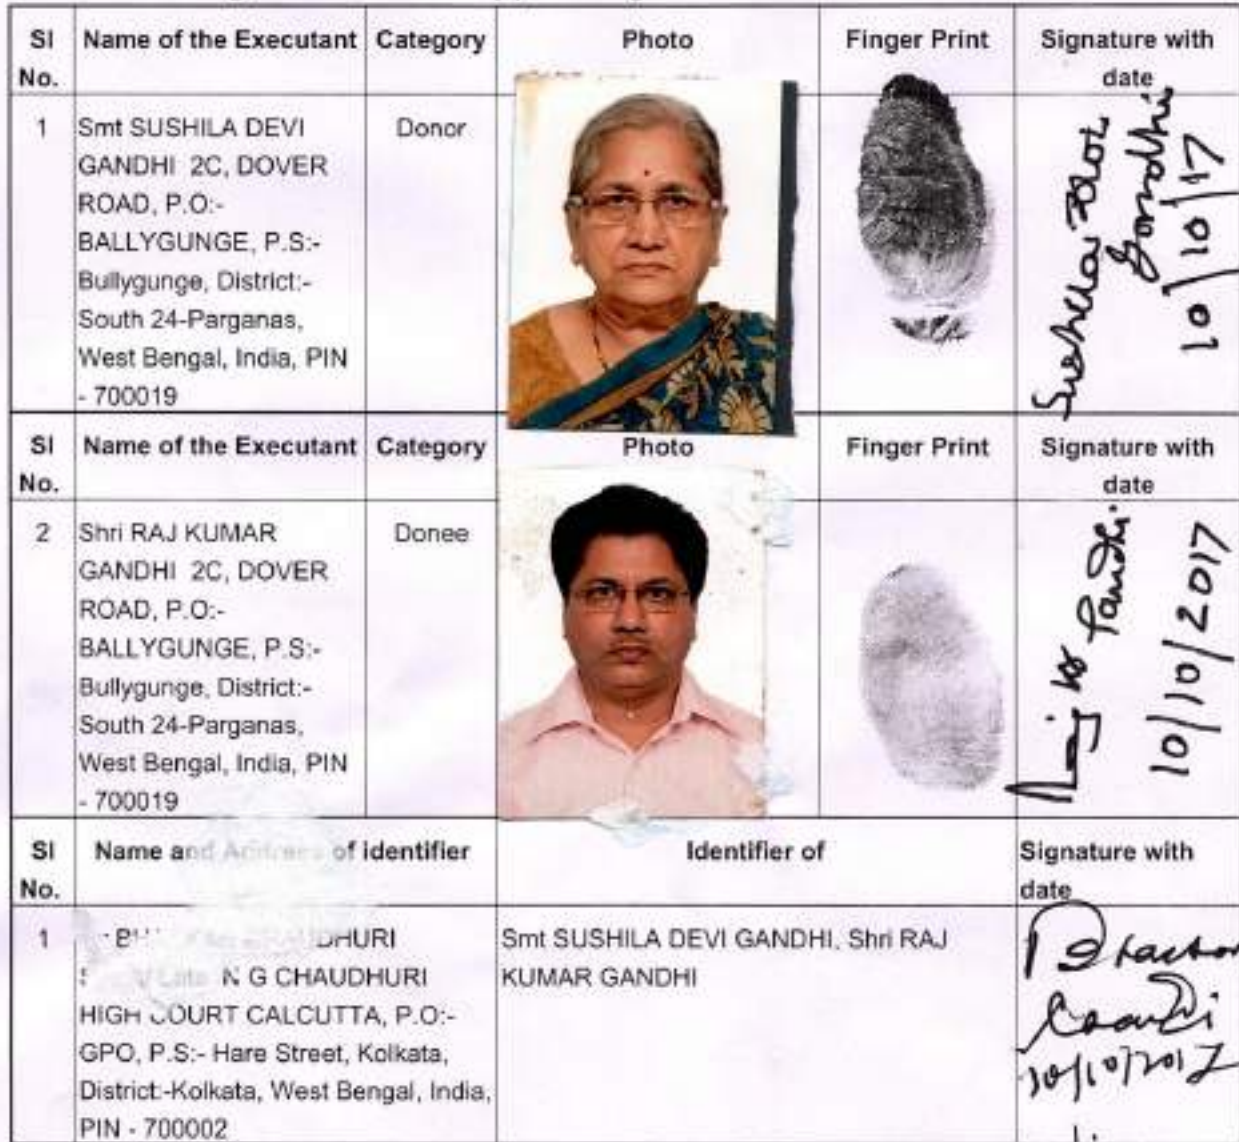 Sl No. Name of the Executant Category Photo Finger Print Signature with date
1 Smt SUSHILA DEVI Donor
GANDHI 2C, DOVER
ROAD, P.O:-
BALLYGUNGE, P.S:-
Bullygunge, District:-
South 24-Parganas,
West Bengal, India, PIN
- 700019
Gandhi
10/10/17
Sl No. Name of the Executant Category Photo Finger Print Signature with date
2 Shri RAJ KUMAR Donee
GANDHI 2C, DOVER
ROAD, P.O:-
BALLYGUNGE, P.S:-
Bullygunge, District:-
South 24-Parganas,
West Bengal, India, PIN
- 700019
10/10/2017
Sl No. Name and Address of identifier Identifier of Signature with date
1 CHAUDHURI
Late N G CHAUDHURI
HIGH COURT CALCUTTA, P.O:-
GPO, P.S:- Hare Street, Kolkata,
District:-Kolkata, West Bengal, India,
PIN - 700002
Smt SUSHILA DEVI GANDHI, Shri RAJ
KUMAR GANDHI
10/10/2017